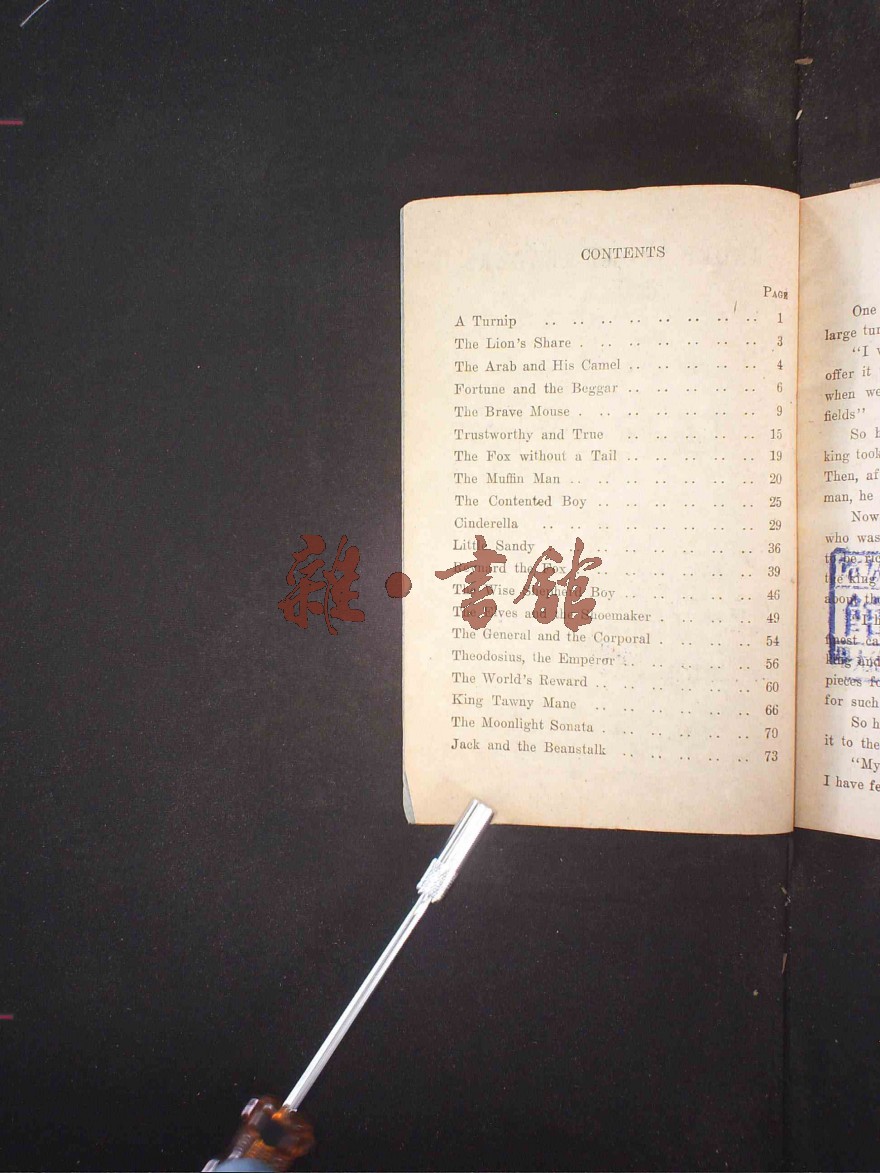 CONTENTS
PAGE
A Turnip .. .. .. .. .. .. .. .. 1
The Lion's Share . .. .. .. .. .. .. 3
The Arab and His Camel .. .. .. .. .. 4
Fortune and the Beggar .. .. .. .. .. 6
The Brave Mouse . .. .. .. .. .. .. 9
Trustworthy and True .. .. .. .. .. 15
The Fox without a Tail .. .. .. .. .. 19
The Muffin Man .. .. .. .. .. .. .. 20
The Contented Boy .. .. .. .. .. .. 25
Cinderella .. .. .. .. .. .. .. .. 29
Little Sandy .. .. .. .. .. .. 36
Reynard the Fox .. .. .. .. .. .. 39
The Wise Shepherd Boy .. .. .. .. .. 46
The Elves and the Shoemaker . .. .. .. 49
The General and the Corporal . .. .. .. 54
Theodosius, the Emperor .. .. .. .. .. 56
The World's Reward .. .. .. .. .. .. 60
King Tawny Mane .. .. .. .. .. .. 66
The Moonlight Sonata . .. .. .. .. .. 70
Jack and the Beanstalk .. .. .. .. .. 73
雜·書館
One
large
"I
offer it
when
fields"
So
king took
Then,
man, he
Now
who was
to be
the king
about
finest
king and
pieces
for such
So
it to the
"My
I have